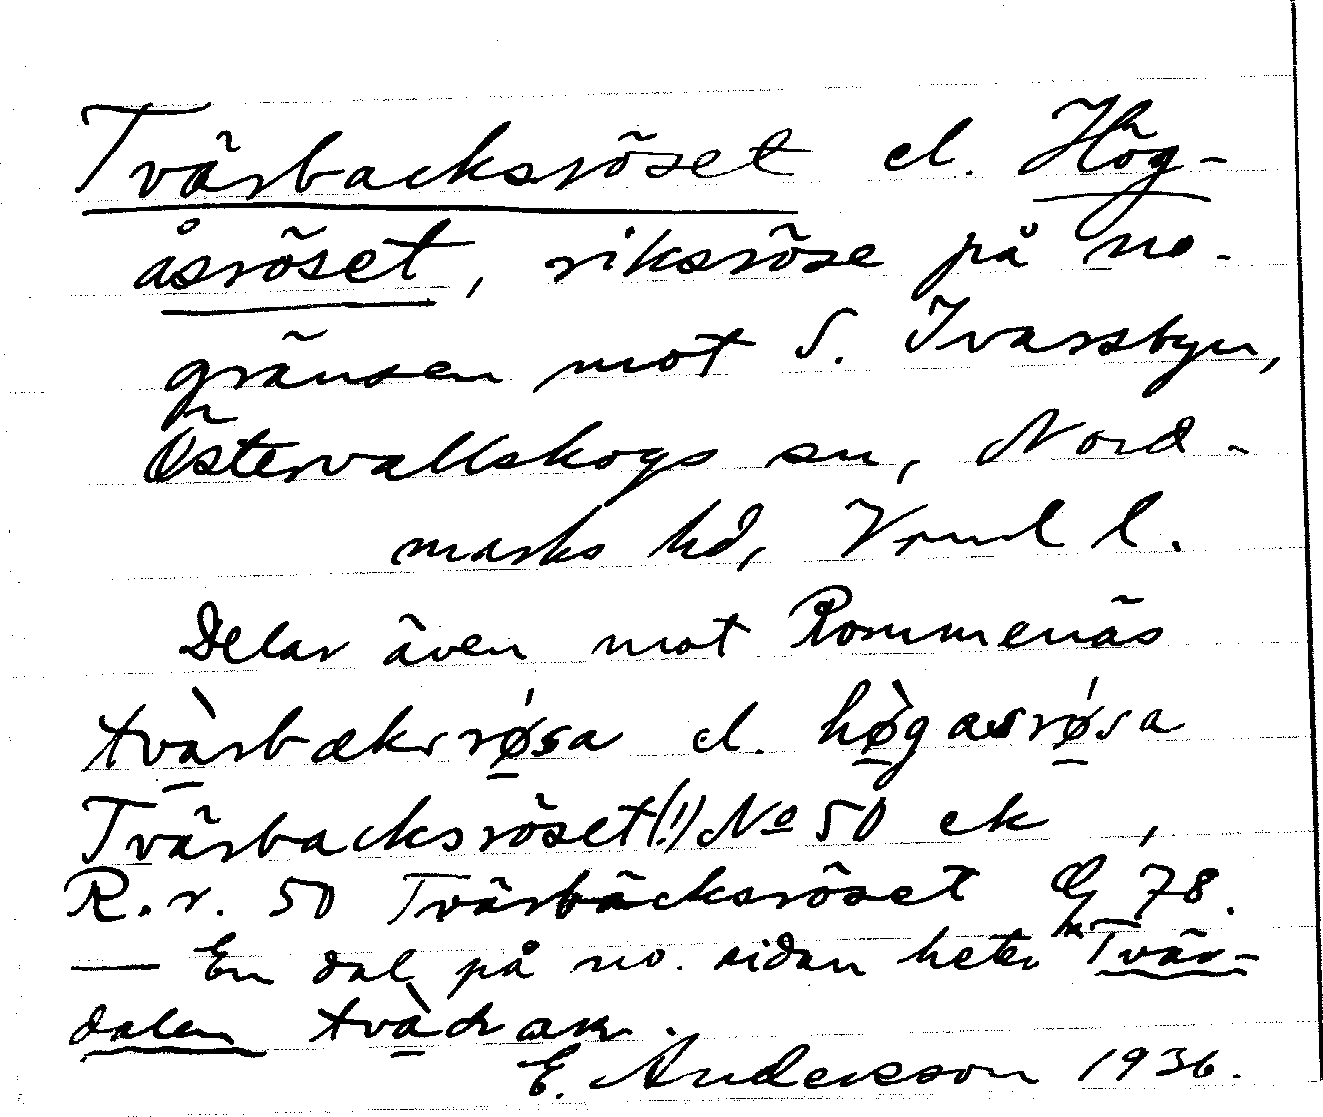 Tvärbacksröset el. Hög-
åsröset, riksröse på no-
gränsen mot S. Ivarsbyn,
Östervallskogs sn, Nord-
marks hd, Vrml l.
Delar även mot Rommenäs
tvàrbaksrǿsa el. hø̀gasrǿsa
Tvärbacksröset(!) No 50 ek,
R.r. 50 Tvärbäcksröset G 78.
— En dal på no. sidan heter Tvär-
dalen
E. Andersson 1936.